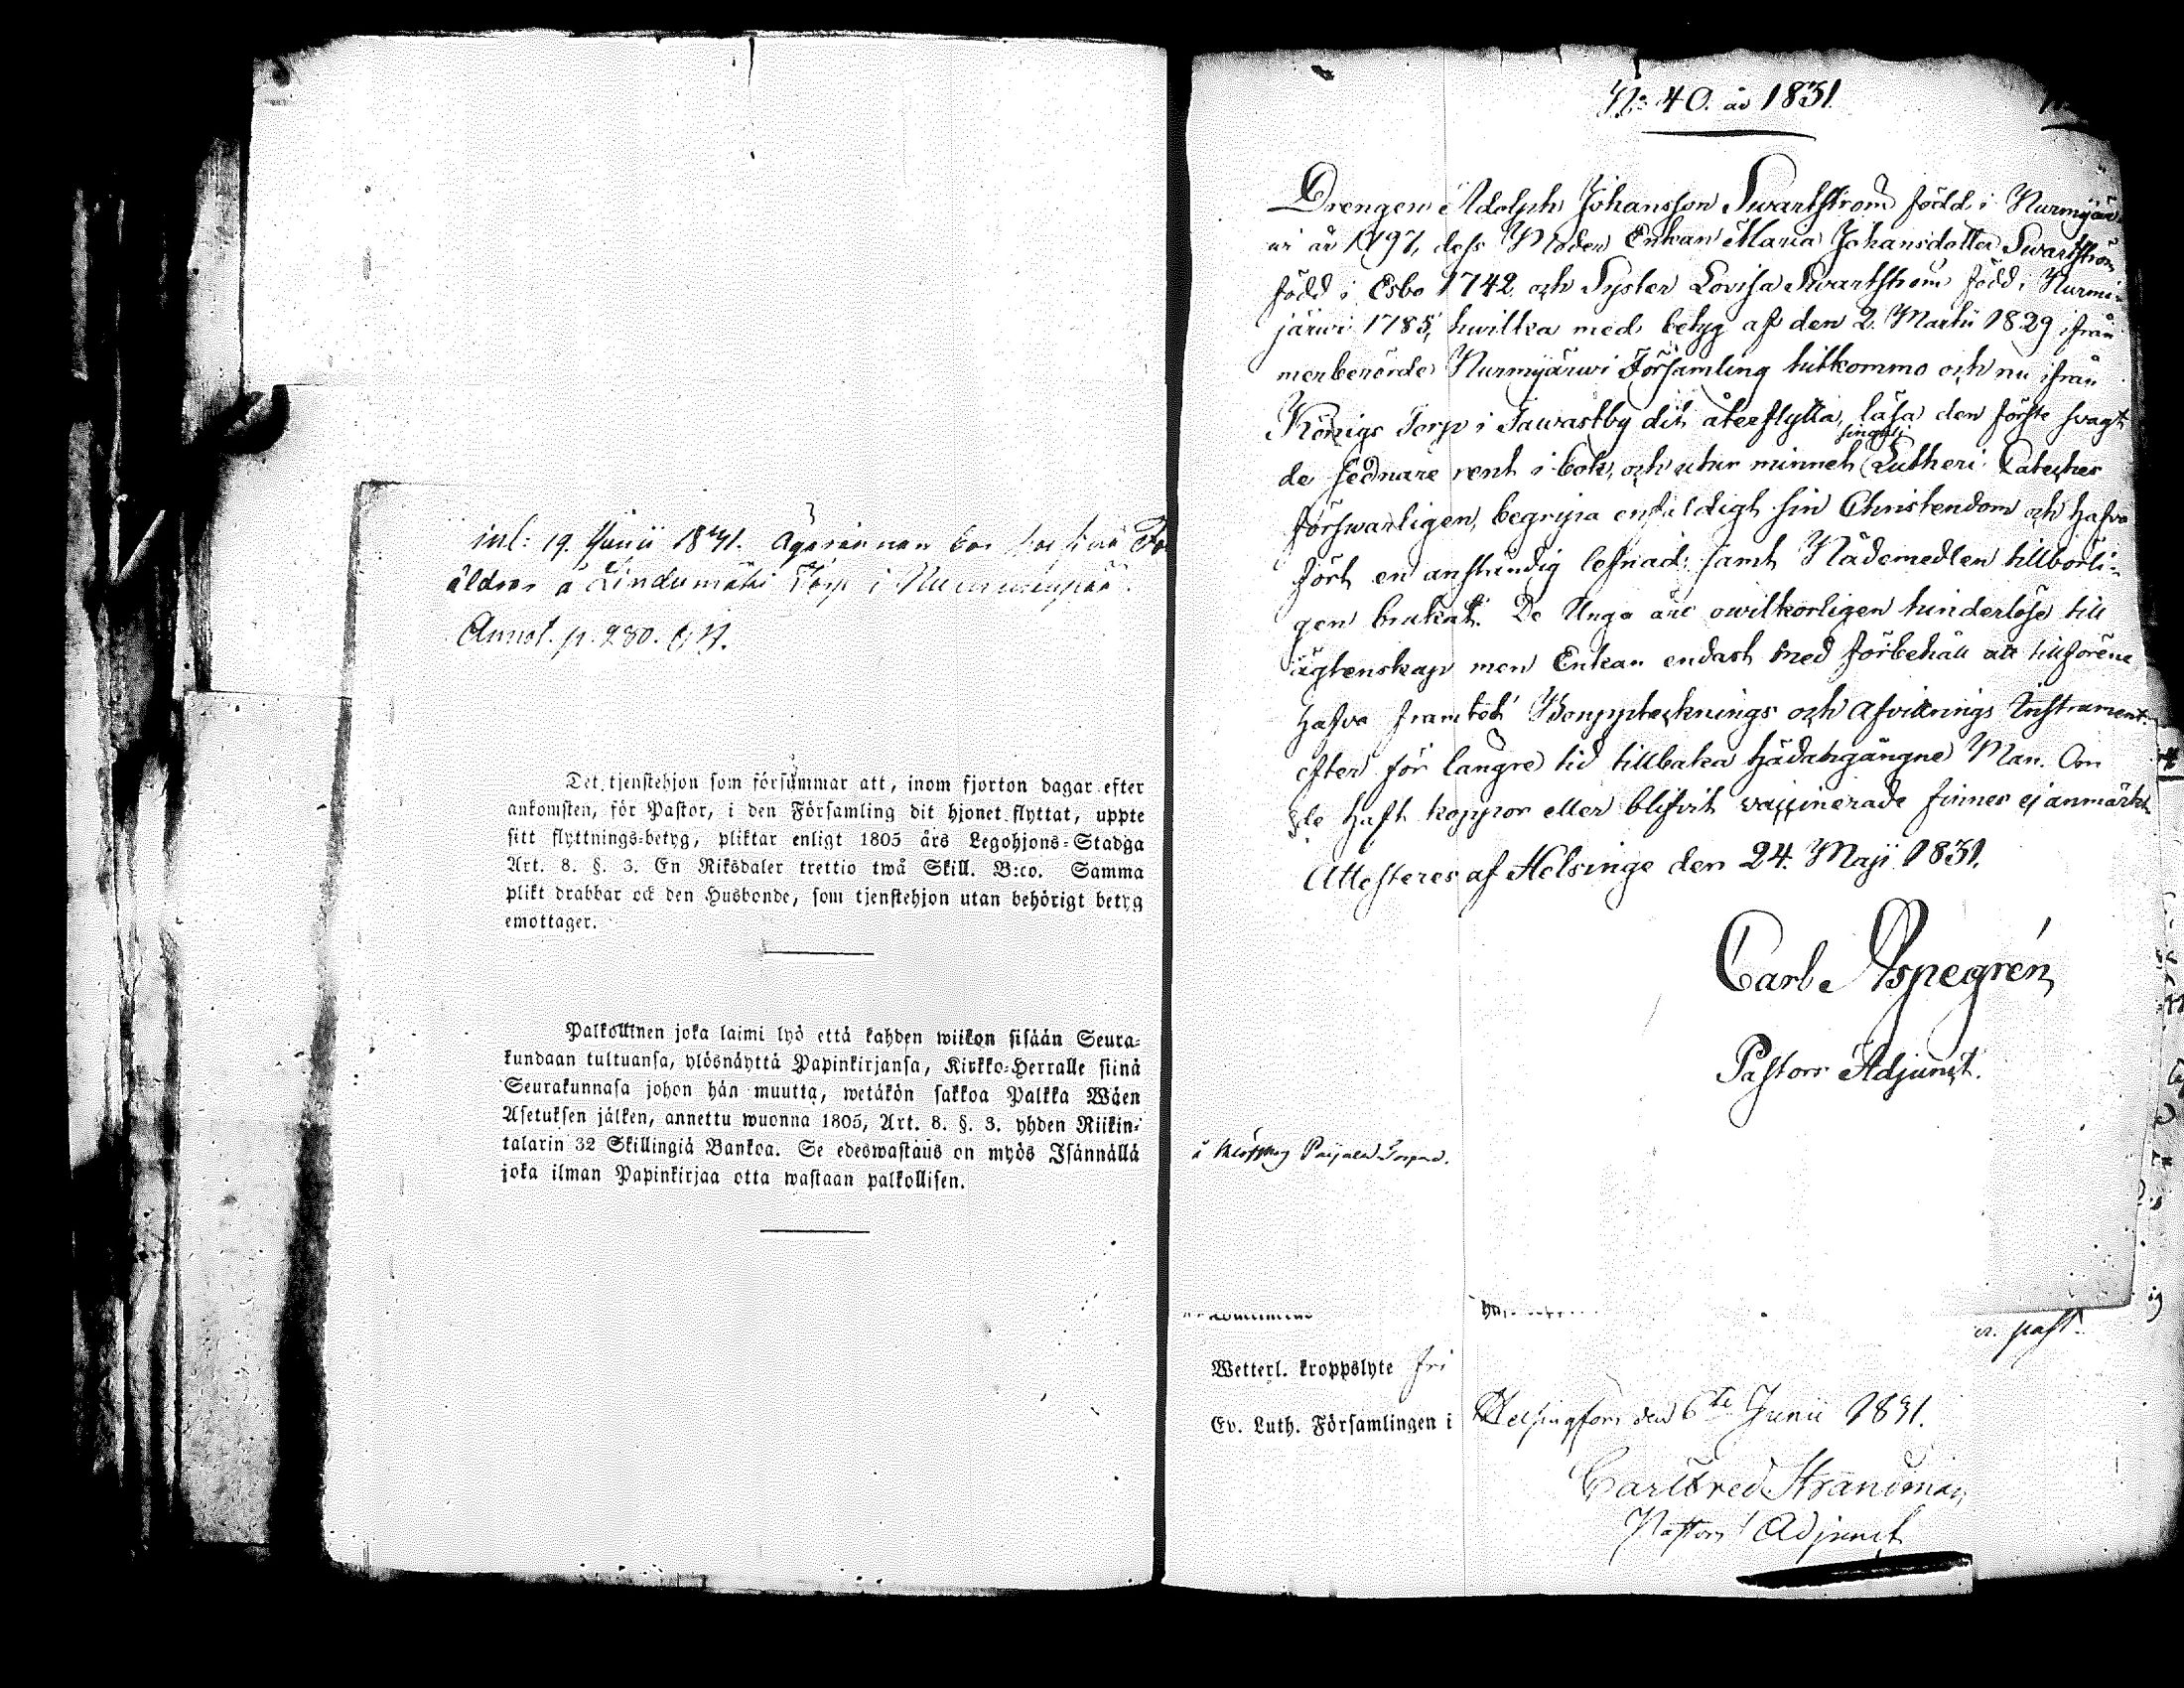 inl: 19. Junii 1831. Ägarinnan bor hos sina För
äldrar å Lindumäki Torp i Nummenpää.
Annot. p. 280.
Det tjenstehjon som försummar att, inom fjorton dagar efter
ankomsten, för Pastor, i den Församling dit hjonet flyttat, uppte
sitt flyttnings-betyg, pliktar enligt 1805 års Legohjons-Stadga
Art. 8. §. 3. En Riksdaler trettio twå Skill. B:co. Samma
plikt drabbar ock den Husbonde, som tjenstehjon utan behörigt betyg
emottager.
Palkollinen joka laimi lyö että kahden wiikon sisään Seura-
kundaan tultuansa, ylösnäyttä Papinkirjansa, Kirkko-Herralle siinä
Seurakunnasa johon hän muutta, wetäkön sakkoa Palkka Wäen
Asetuksen jälken, annettu wuonna 1805, Art. 8. §. 3. yhden Riikin-
talarin 32 Skillingiä Bankoa. Se edeswastaus on myös Isännällä
joka ilman Papinkirjaa otta wastaan palkollisen.
No 40. år 1831.
Drengen Adolph Johansson Swartström född i Nurmijär
wi år 1797, dess Moder Enkan Maria Johansdotter Swartström
född i Esbo 1742 och Syster Lovisa Swartström född i Nurmi-
järwi 1785, hwilka med betyg af den 2. Martii 1829 ifrån
merberörde Nurmijärwi Församling hitkommo och nu ifrån
Königs Torp i Tawastby dit återflytta, läsa den förste swagt
de sednare rent i bok, och utur minnet Lutheri Cateches
förswarligen, begripa enfaldigt sin Christendom och hafva
fört en anständig lefnad samt Nådemedlen tillbörli-
gen brukat. De Unga äre owilkorligen hinderlöse till
ägtenskap men Enkan endast med förbehåll att tillförene
hafva framtet Bouppteknings och Afvittrings Instrument
efter för längre tid tillbaka hädangångne Man. Om
de haft koppor eller blifvit vaccinerade finnes ej anmärkt
Attesteres af Helsinge den 24. Maji 1831.
Carl Aspegrén
Pastors Adjunct.
Torpare.
v. past.
Wetterl. kroppslyte fri
Ev. Luth. Församlingen i Helsingfors den 6te Junii 1831.
Carl Fred Strandman
Pastors Adjunct